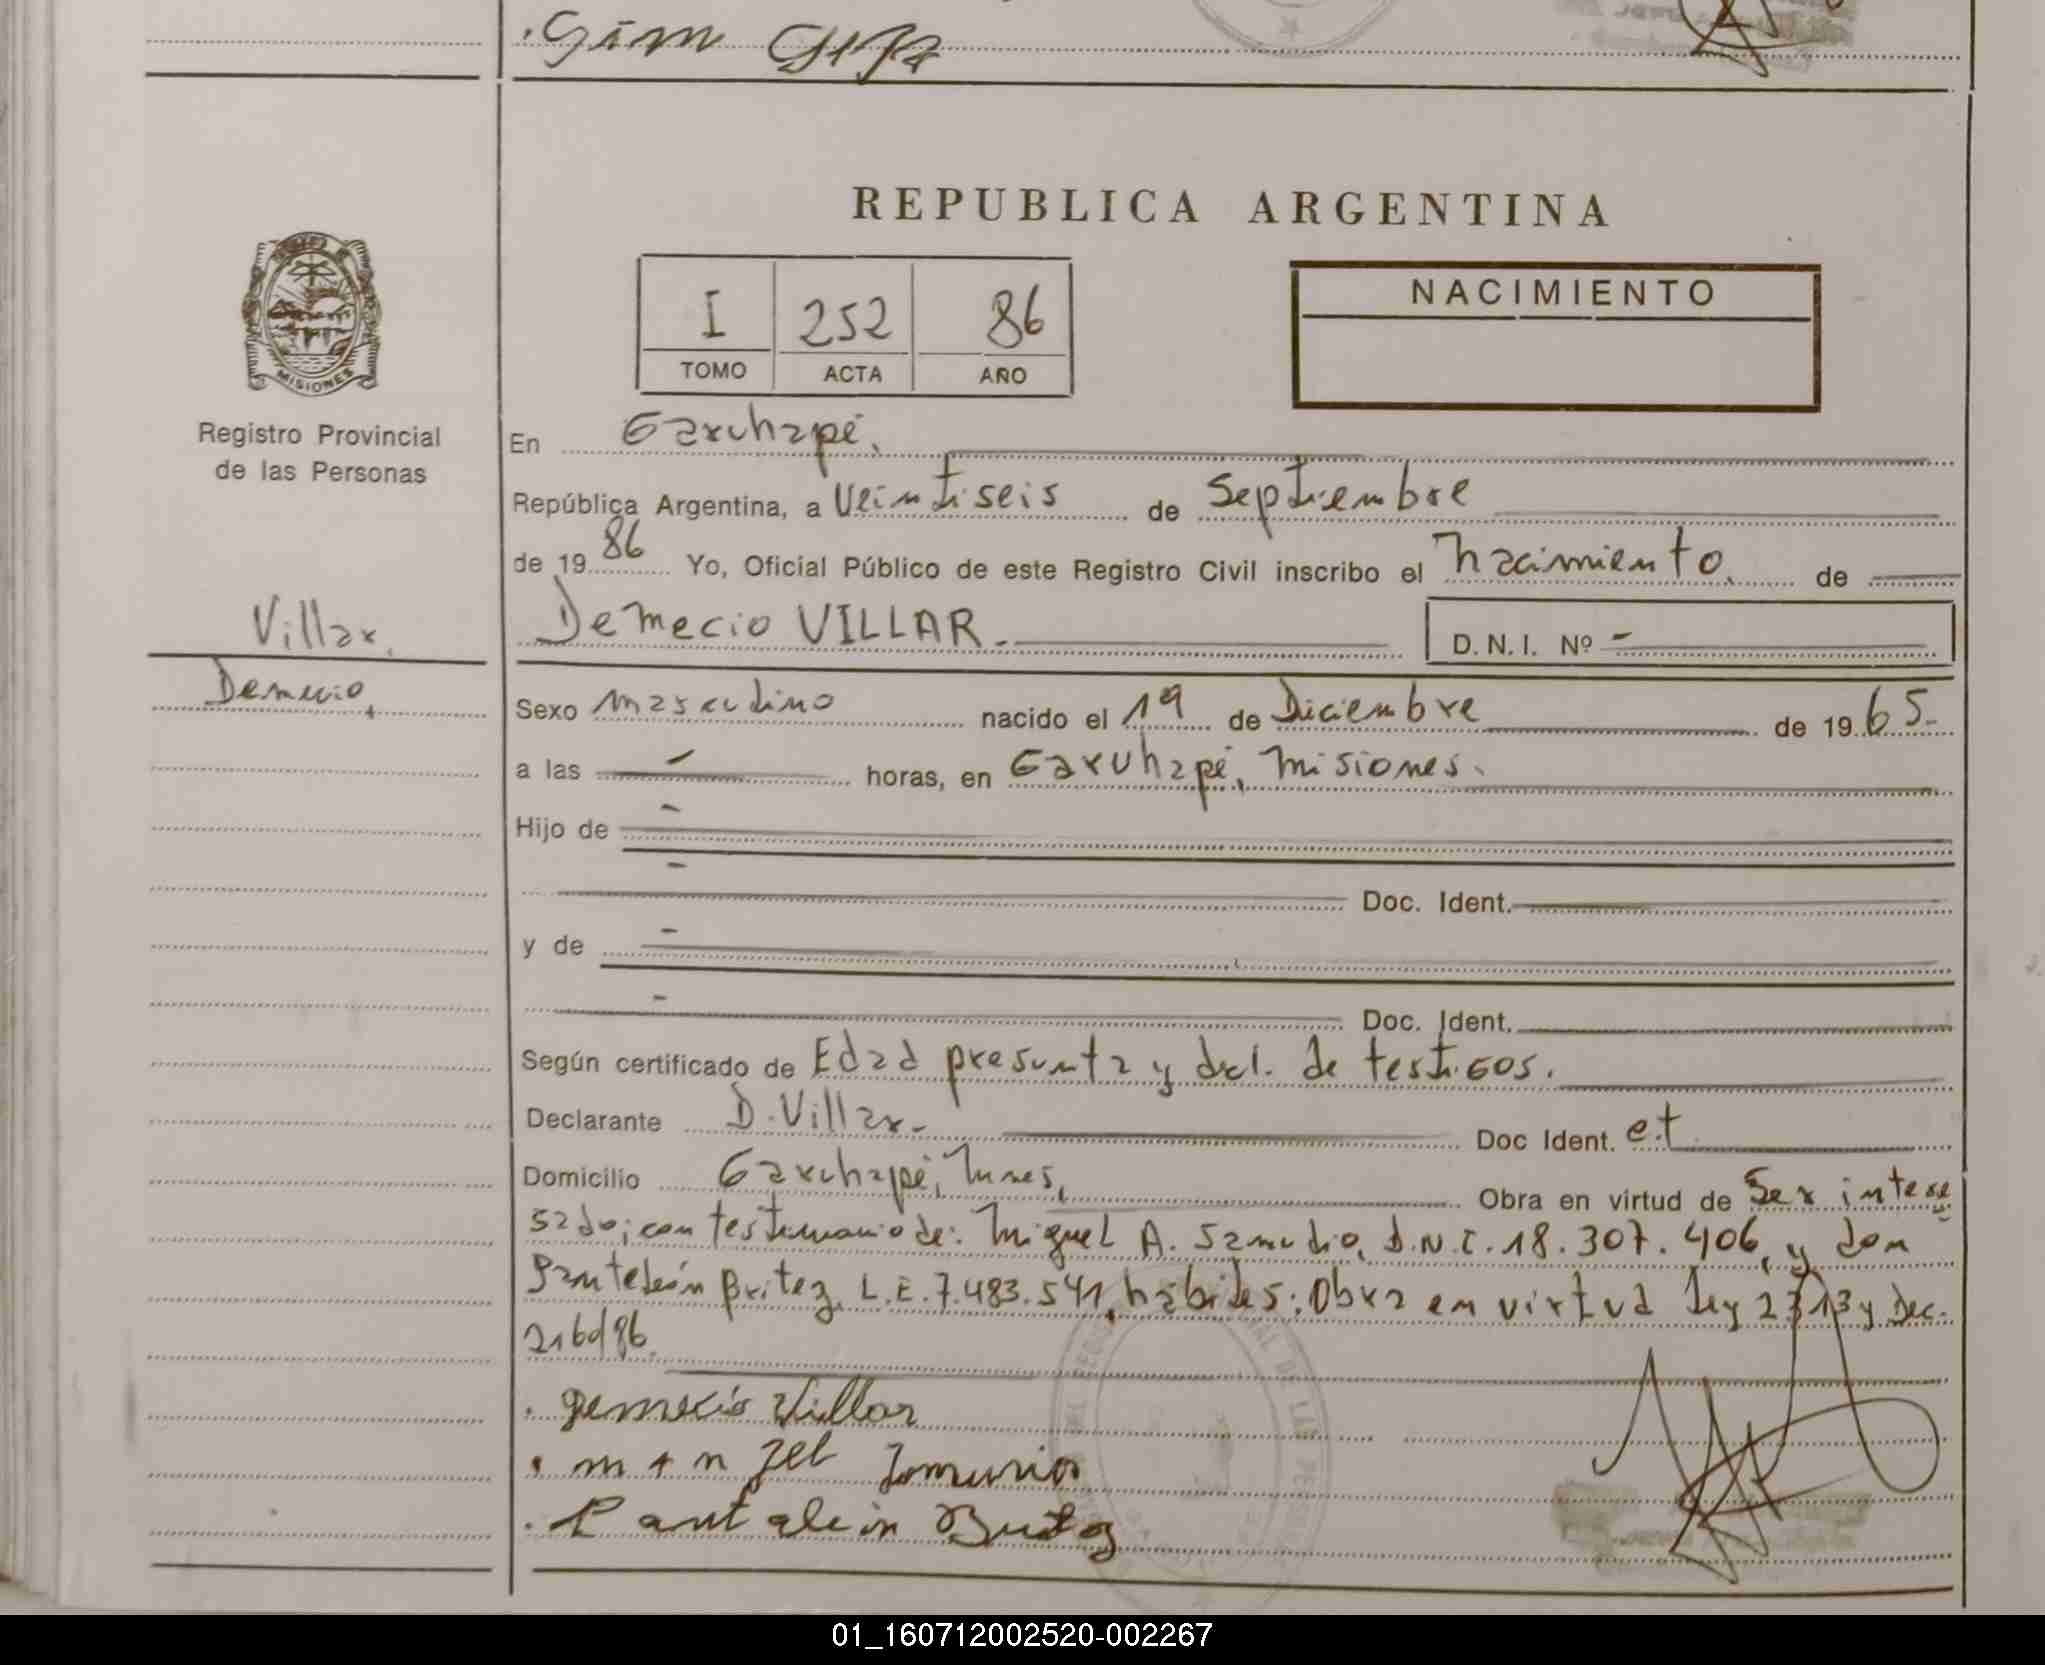 REPUBLICA ARGENTINA
I 252 86
TOMO ACTA AÑO
NACIMIENTO
MISIONES
Registro Provincial
de las Personas
Villar,
Demecio,
En Garuhapé,
República Argentina, a Veintiseis de Septiembre
de 19 86 Yo, Oficial Público de este Registro Civil inscribo el nacimiento de
Demecio VILLAR.- D.N.I. Nº -
Sexo masculino nacido el 19 de Diciembre de 19 65.-
a las - horas, en Garuhapé, Misiones.
Hijo de -
- Doc. Ident.
y de -
- Doc. Ident.
Según certificado de Edad presunta y decl. de testigos.
Declarante D. Villar.- Doc Ident. e.t
Domicilio Garuhapé, Mnes, Obra en virtud de Ser intere
sado; con testimonio de: Miguel A. Samudio, D.N.I. 18.307.406, y don
Panteleón Britez, L.E. 7.483.541, hábiles; Obra en virtud Ley 2313 y Dec.
2160/86.
Demecio Villar
Pantaleón Britez
01_160712002520-002267